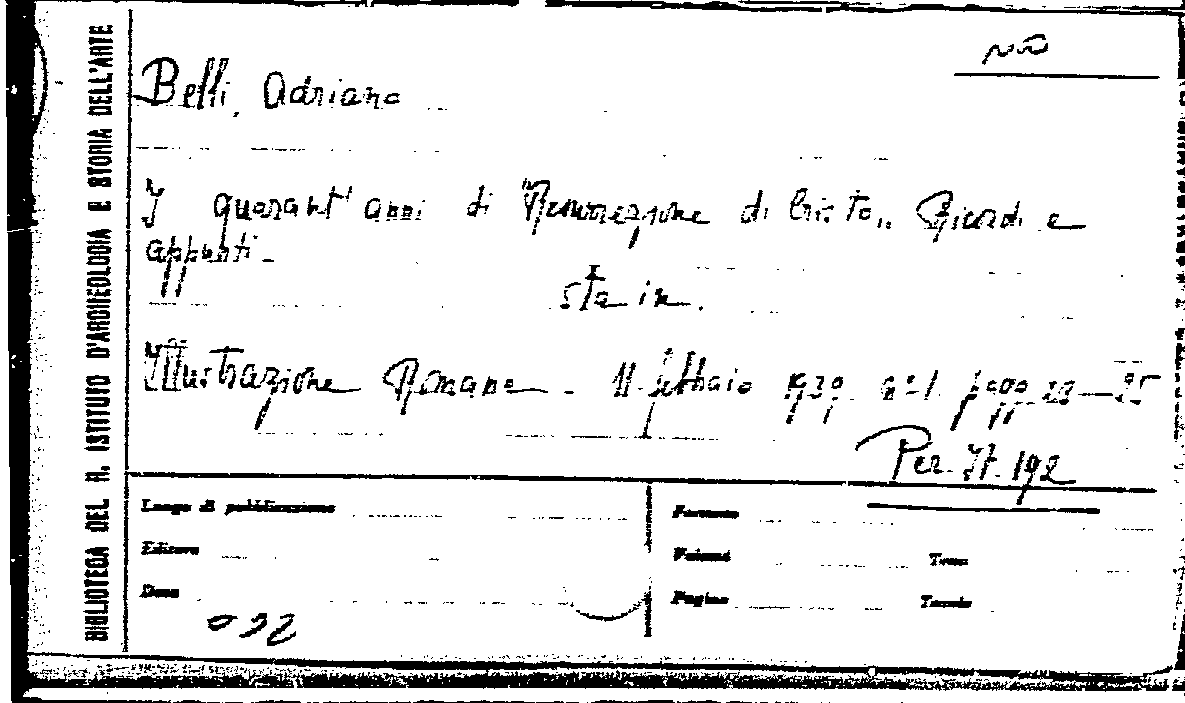 no
BIBLIOTECA DEL R. ISTITUTO D'ARCHEOLOGIA E STORIA DELL'ARTE
Belli, Adriano
I quarant'anni di Resurrezione di Cristo,, Ricordi e
appunti -
sta in.
Illustrazione Romana - 11 febbraio 1939 n° 1 pagg 22-25
Per. It. 192
Luogo di pubblicazione
Editore
Data
Formato
Volumi
Tomo
Pagine
Tavole